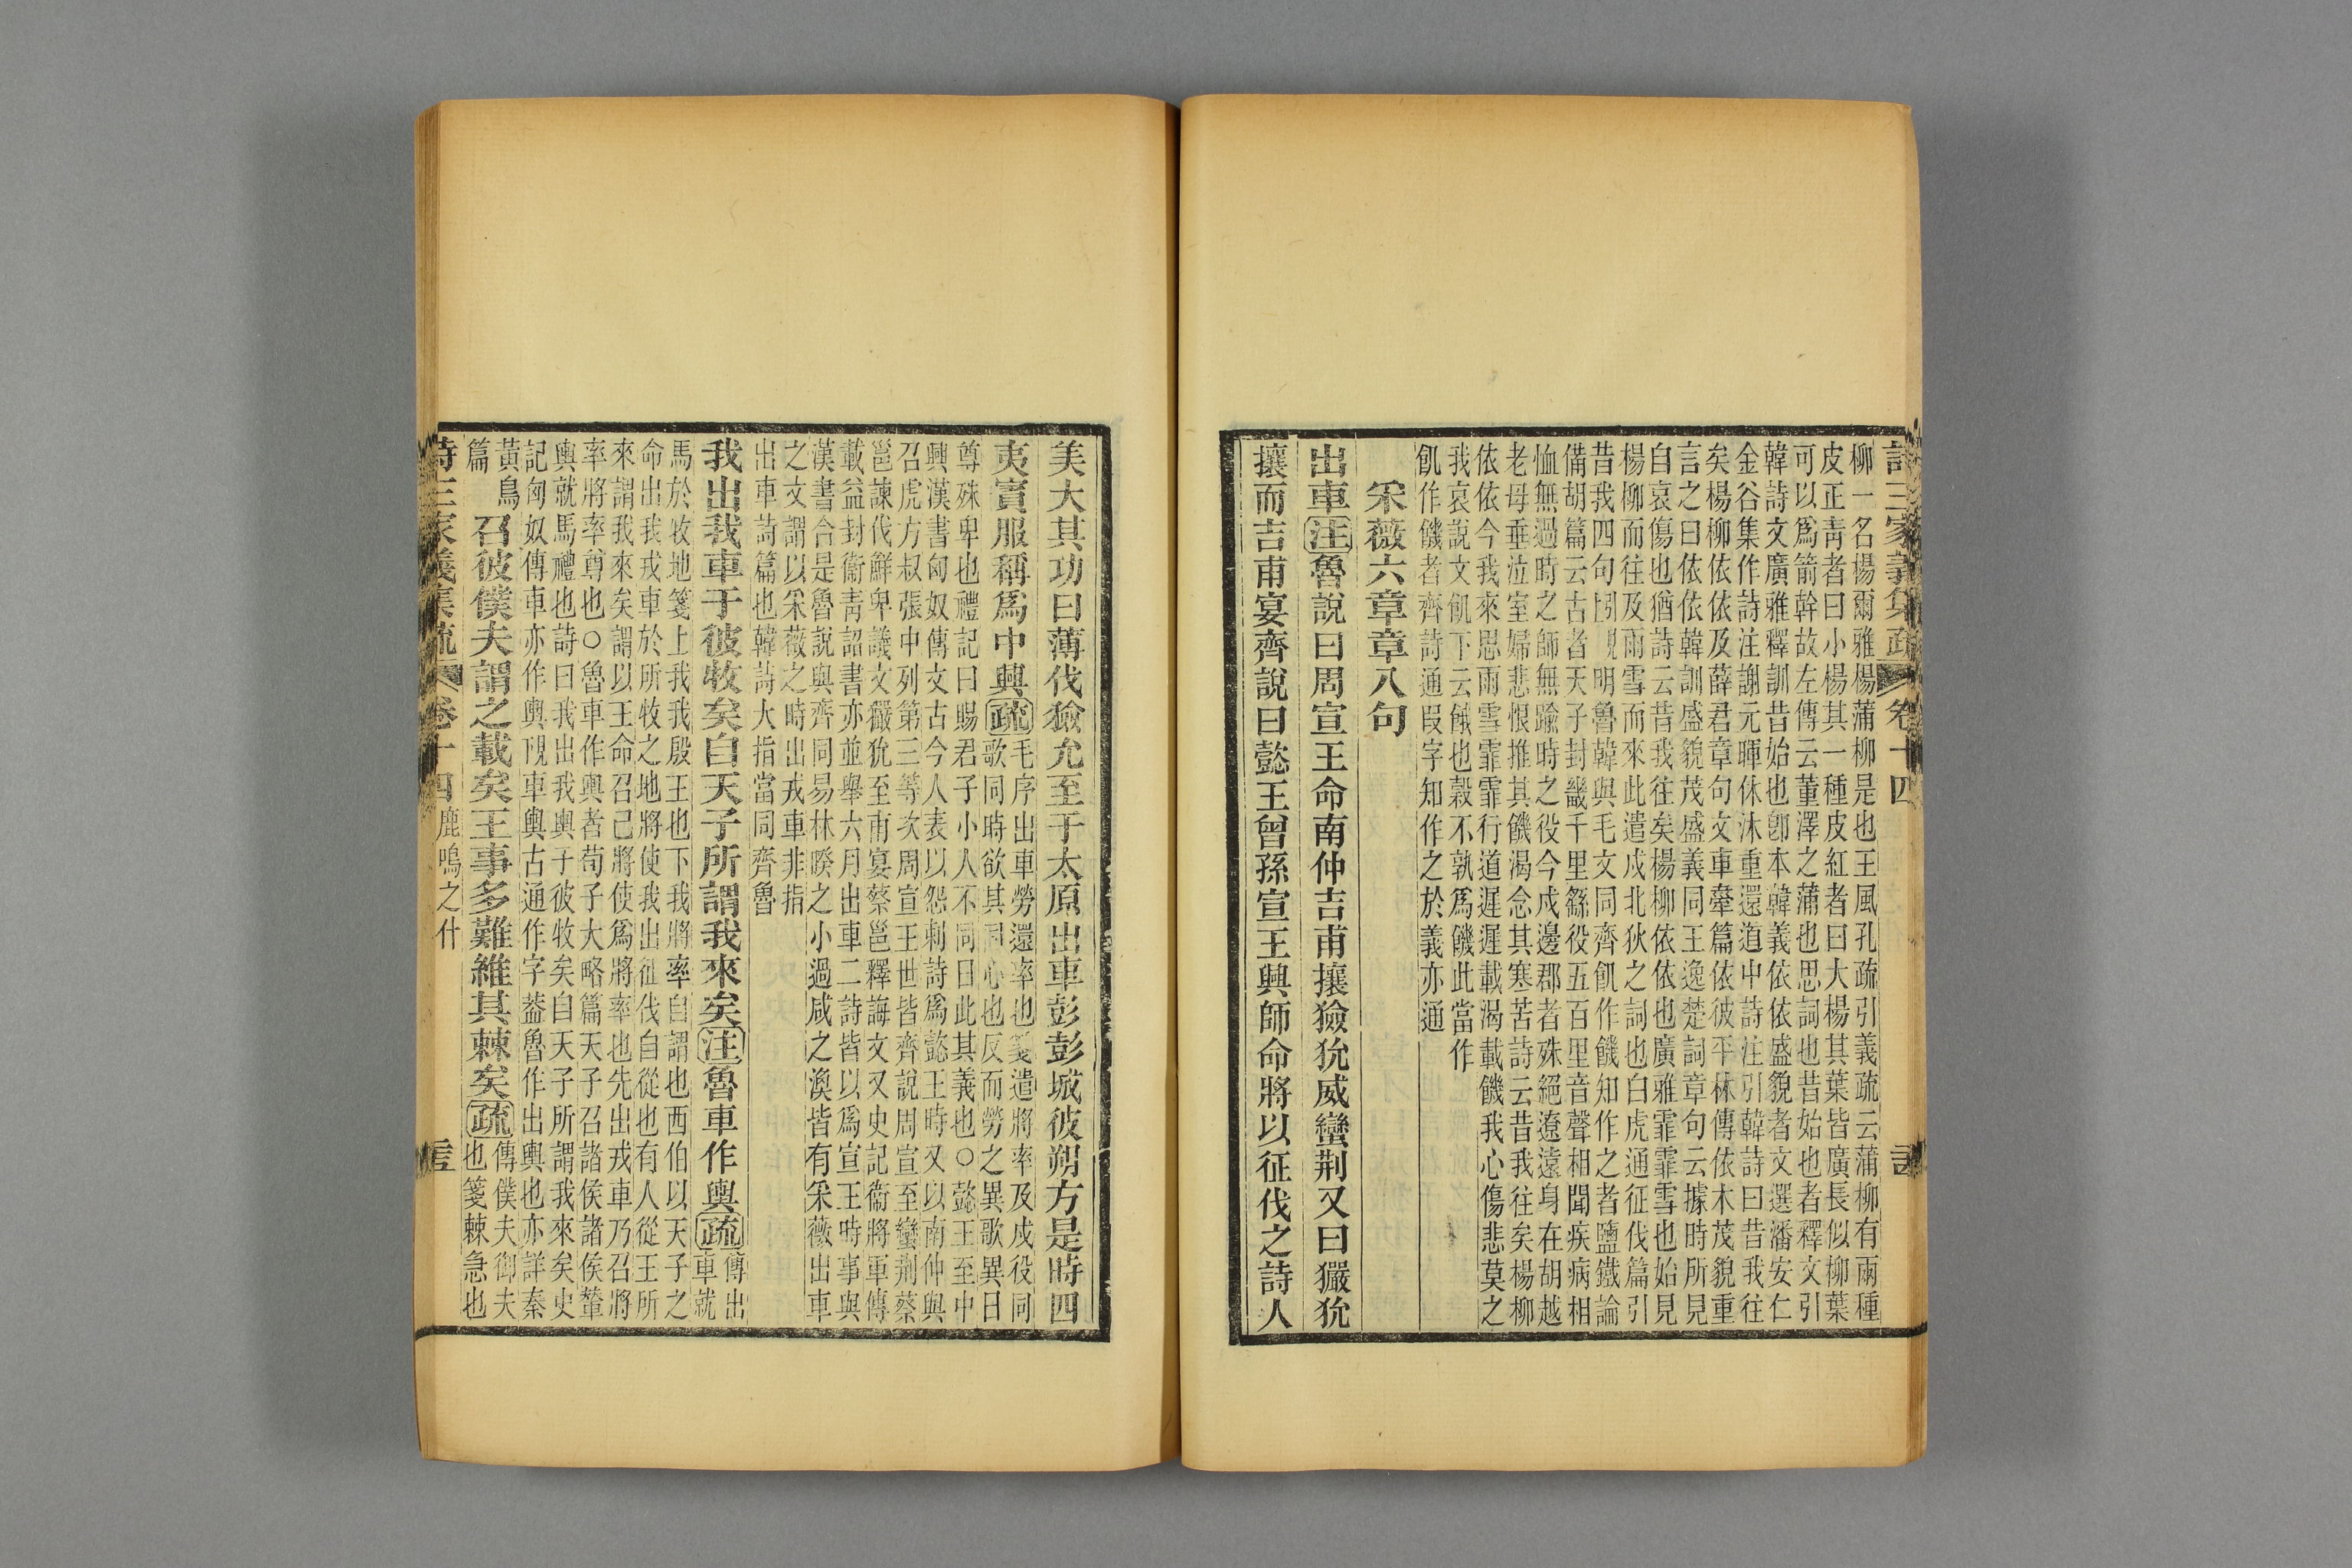 柳一名楊爾雅楊蒲柳是也王風孔疏引義疏云蒲柳有兩種
皮正靑者曰小楊其一種皮紅者曰大楊其葉皆廣長似柳葉
可以爲箭幹故左傳云董澤之蒲也思詞也昔始也者釋文引
韓詩文廣雅釋訓昔始也卽本韓義依依盛貌者文選潘安仁
金谷集作詩注謝元暉休沐重還道中詩注引韓詩曰昔我往
矣楊柳依依及薛君章句文車舝篇依彼平林傳依木茂貌重
言之曰依依韓訓盛貌茂盛義同王逸楚詞章句云據時所見
自哀傷也猶詩云昔我往矣楊柳依依也廣雅霏霏雪也始見
楊柳而往及雨雪而來此遣戍北狄之詞也白虎通征伐篇引
昔我四句明魯韓與毛文同齊飢作饑知作之者鹽鐵論
備胡篇云古者天子封畿千里繇役五百里音聲相聞疾病相
恤無過時之師無踰時之役今戍邊郡者殊絕遼遠身在胡越
老母垂泣室婦悲恨推其饑渴念其寒苦詩云昔我往矣楊柳
依依今我來思雨雪霏霏行道遲遲載渴載饑我心傷悲莫之
我哀說文飢下云餓也穀不孰爲饑此當作
飢作饑者齊詩通叚字知作之於義亦通
采薇六章章八句
出車注魯說曰周宣王命南仲吉甫攘獫狁威蠻荆又曰玁狁
攘而吉甫宴齊說曰懿王曾孫宣王興師命將以征伐之詩人
詩三家義集疏 卷十四
美大其功曰薄伐獫允至于太原出車彭彭城彼朔方是時四
夷賓服稱爲中興疏毛序出車勞還率也箋遣將率及戍役同
歌同時欲其同心也反而勞之異歌異日
尊殊卑也禮記曰賜君子小人不同日此其義也○懿王至中
興漢書匈奴傳文古今人表以怨刺詩爲懿王時又以南仲與
召虎方叔張中列第三等次周宣王世皆齊說周宣至蠻荆蔡
邕諫伐鮮卑議文玁狁至甫宴蔡邕釋誨文又史記衞將軍傳
載益封衞靑詔書亦並舉六月出車二詩皆以爲宣王時事與
漢書合是魯說與齊同易林睽之小過咸之渙皆有采薇出車
之文謂以采薇之時出戎車非指
出車詩篇也韓詩大指當同齊魯
我出我車于彼牧矣自天子所謂我來矣注魯車作輿疏傳出
車就
馬於牧地箋上我我殷王也下我將率自謂也西伯以天子之
命出我戎車於所牧之地將使我出征伐自從也有人從王所
來謂我來矣謂以王命召己將使爲將率也先出戎車乃召將
率將率尊也○魯車作輿者荀子大略篇天子召諸侯諸侯輦
輿就馬禮也詩曰我出我輿于彼牧矣自天子所謂我來矣史
記匈奴傳車亦作輿覛車輿古通作字葢魯作出輿也亦詳秦
黃鳥
篇
召彼僕夫謂之載矣王事多難維其棘矣疏傳僕夫御夫
也箋棘急也
詩三家義集疏 卷十四 鹿鳴之什